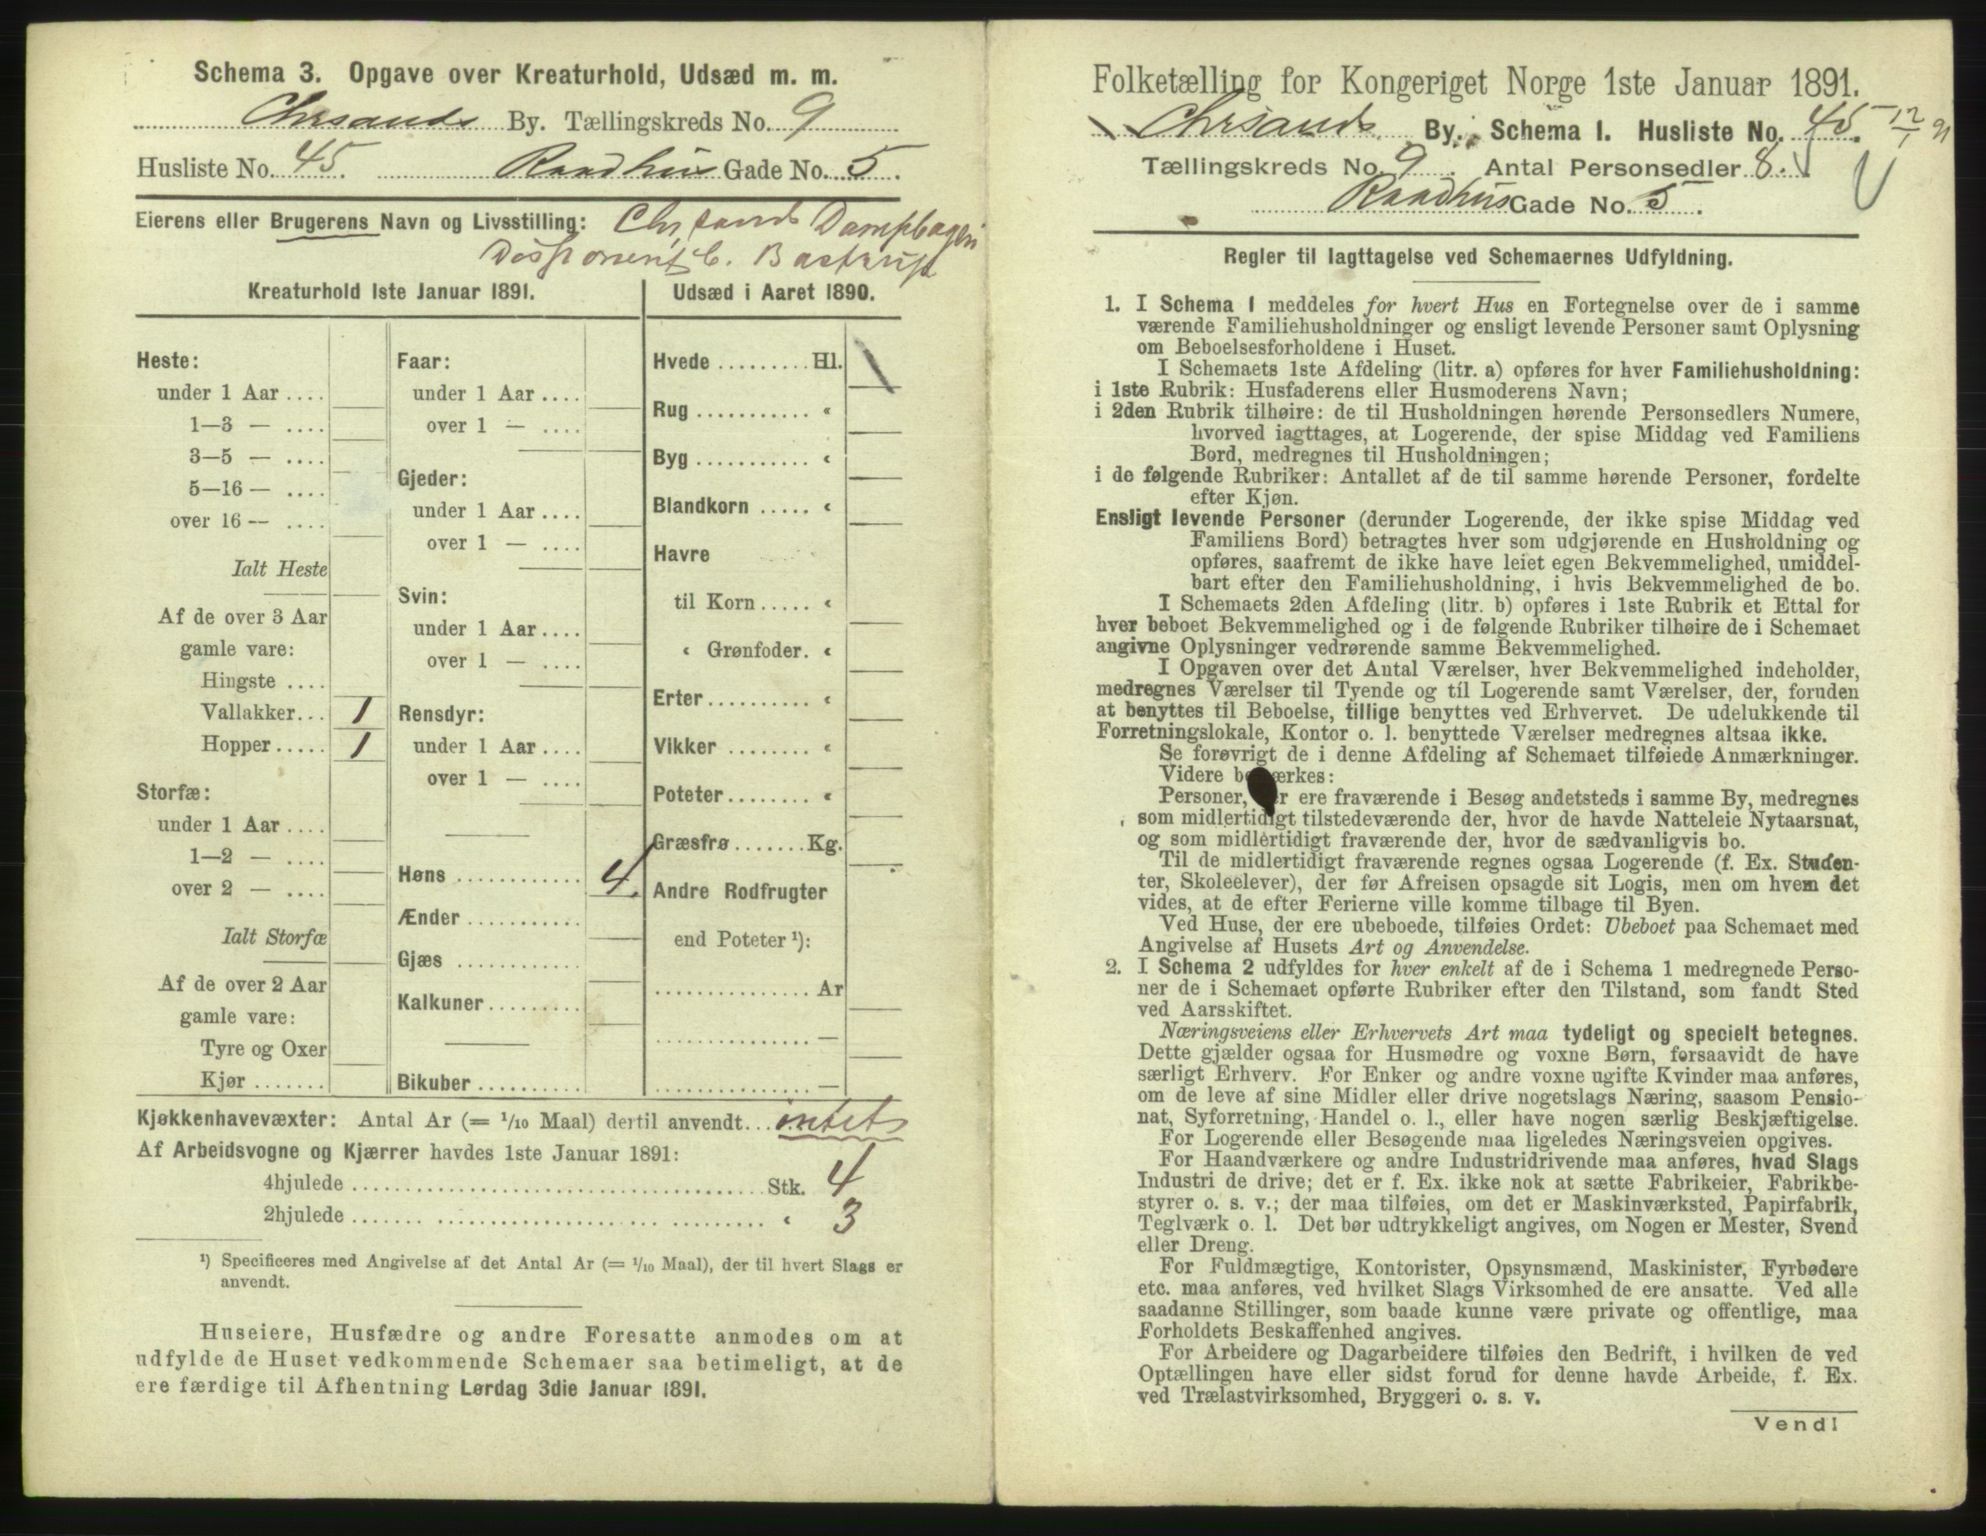 Schema 3. Opgave over Kreaturhold, Udsæd m. m.
Chrsands By. Tællingskreds No. 9
Husliste No. 45. Raadhus Gade No. 5.
Eierens eller Brugerens Navn og Livsstilling: Chrsands Dampbageri
Disponent C. Bastrup
Kreaturhold 1ste Januar 1891. Udsæd i Aaret 1890.
Heste:
under 1 Aar ....
1—3 — ....
3—5 — ....
5—16 — ....
over 16 — ....
Ialt Heste
Af de over 3 Aar
gamle vare:
Hingste ....
Vallakker... 1
Hopper ..... 1
Storfæ:
under 1 Aar ....
1—2 — ....
over 2 — ....
Ialt Storfæ
Af de over 2 Aar
gamle vare:
Tyre og Oxer
Kjør .......
Faar:
under 1 Aar ....
over 1 — ....
Gjeder:
under 1 Aar ....
over 1 — ....
Svin:
under 1 Aar ....
over 1 — ....
Rensdyr:
under 1 Aar ....
over 1 — ....
Høns ........... 4.
Ænder ..........
Gjæs ...........
Kalkuner ........
Bikuber .........
Hvede ......... Hl.
Rug ........... «
Byg ........... «
Blandkorn ..... «
Havre
til Korn ..... «
« Grønfoder. «
Erter ......... «
Vikker ........ «
Poteter ........ «
Græsfrø ....... Kg.
Andre Rodfrugter
end Poteter ¹):
............... Ar
............... —
............... —
Kjøkkenhavevæxter: Antal Ar (= 1/10 Maal) dertil anvendt... intet
Af Arbeidsvogne og Kjærrer havdes 1ste Januar 1891:
4hjulede ........ Stk. 4
2hjulede ........ « 3
¹) Specificeres med Angivelse af det Antal Ar (= 1/10 Maal), der til hvert Slags er
anvendt.
Huseiere, Husfædre og andre Foresatte anmodes om at
udfylde de Huset vedkommende Schemaer saa betimeligt, at de
ere færdige til Afhentning Lørdag 3die Januar 1891.
Folketælling for Kongeriget Norge 1ste Januar 1891.
Chrsands By. Schema 1. Husliste No. 45. 12/1 91
Tællingskreds No. 9. Antal Personsedler 8.
Raadhus Gade No. 5.
Regler til Iagttagelse ved Schemaernes Udfyldning.
1. I Schema 1 meddeles for hvert Hus en Fortegnelse over de i samme
værende Familiehusholdninger og ensligt levende Personer samt Oplysning
om Beboelsesforholdene i Huset.
I Schemaets 1ste Afdeling (litr. a) opføres for hver Familiehusholdning:
i 1ste Rubrik: Husfaderens eller Husmoderens Navn;
i 2den Rubrik tilhøire: de til Husholdningen hørende Personsedlers Numere,
hvorved iagttages, at Logerende, der spise Middag ved Familiens
Bord, medregnes til Husholdningen;
i de følgende Rubriker: Antallet af de til samme hørende Personer, fordelte
efter Kjøn.
Ensligt levende Personer (derunder Logerende, der ikke spise Middag ved
Familiens Bord) betragtes hver som udgjørende en Husholdning og
opføres, saafremt de ikke have leiet egen Bekvemmelighed, umiddel-
bart efter den Familiehusholdning, i hvis Bekvemmelighed de bo.
I Schemaets 2den Afdeling (litr. b) opføres i 1ste Rubrik et Ettal for
hver beboet Bekvemmelighed og i de følgende Rubriker tilhøire de i Schemaet
angivne Oplysninger vedrørende samme Bekvemmelighed.
I Opgaven over det Antal Værelser, hver Bekvemmelighed indeholder,
medregnes Værelser til Tyende og til Logerende samt Værelser, der, foruden
at benyttes til Beboelse, tillige benyttes ved Erhvervet. De udelukkende til
Forretningslokale, Kontor o. l. benyttede Værelser medregnes altsaa ikke.
Se forøvrigt de i denne Afdeling af Schemaet tilføiede Anmærkninger.
Videre bemærkes:
Personer, der ere fraværende i Besøg andetsteds i samme By, medregnes
som midlertidigt tilstedeværende der, hvor de havde Natteleie Nytaarsnat,
og som midlertidigt fraværende der, hvor de sædvanligvis bo.
Til de midlertidigt fraværende regnes ogsaa Logerende (f. Ex. Studen-
ter, Skoleelever), der før Afreisen opsagde sit Logis, men om hvem det
vides, at de efter Ferierne ville komme tilbage til Byen.
Ved Huse, der ere ubeboede, tilføies Ordet: Ubeboet paa Schemaet med
Angivelse af Husets Art og Anvendelse.
2. I Schema 2 udfyldes for hver enkelt af de i Schema 1 medregnede Perso-
ner de i Schemaet opførte Rubriker efter den Tilstand, som fandt Sted
ved Aarsskiftet.
Næringsveiens eller Erhvervets Art maa tydeligt og specielt betegnes.
Dette gjælder ogsaa for Husmødre og voxne Børn, forsaavidt de have
særligt Erhverv. For Enker og andre voxne ugifte Kvinder maa anføres,
om de leve af sine Midler eller drive nogetslags Næring, saasom Pensio-
nat, Syforretning, Handel o. l., eller have nogen særlig Beskjæftigelse.
For Logerende eller Besøgende maa ligeledes Næringsveien opgives.
For Haandværkere og andre Industridrivende maa anføres, hvad Slags
Industri de drive; det er f. Ex. ikke nok at sætte Fabrikeier, Fabrikbe-
styrer o. s. v.; der maa tilføies, om det er Maskinværksted, Papirfabrik,
Teglværk o. l. Det bør udtrykkeligt angives, om Nogen er Mester, Svend
eller Dreng.
For Fuldmægtige, Kontorister, Opsynsmænd, Maskinister, Fyrbødere
etc. maa anføres, ved hvilket Slags Virksomhed de ere ansatte. Ved alle
saadanne Stillinger, som baade kunne være private og offentlige, maa
Forholdets Beskaffenhed angives.
For Arbeidere og Dagarbeidere tilføies den Bedrift, i hvilken de ved
Optællingen have eller sidst forud for denne havde Arbeide, f. Ex.
ved Trælastvirksomhed, Bryggeri o. s. v.
Vend!